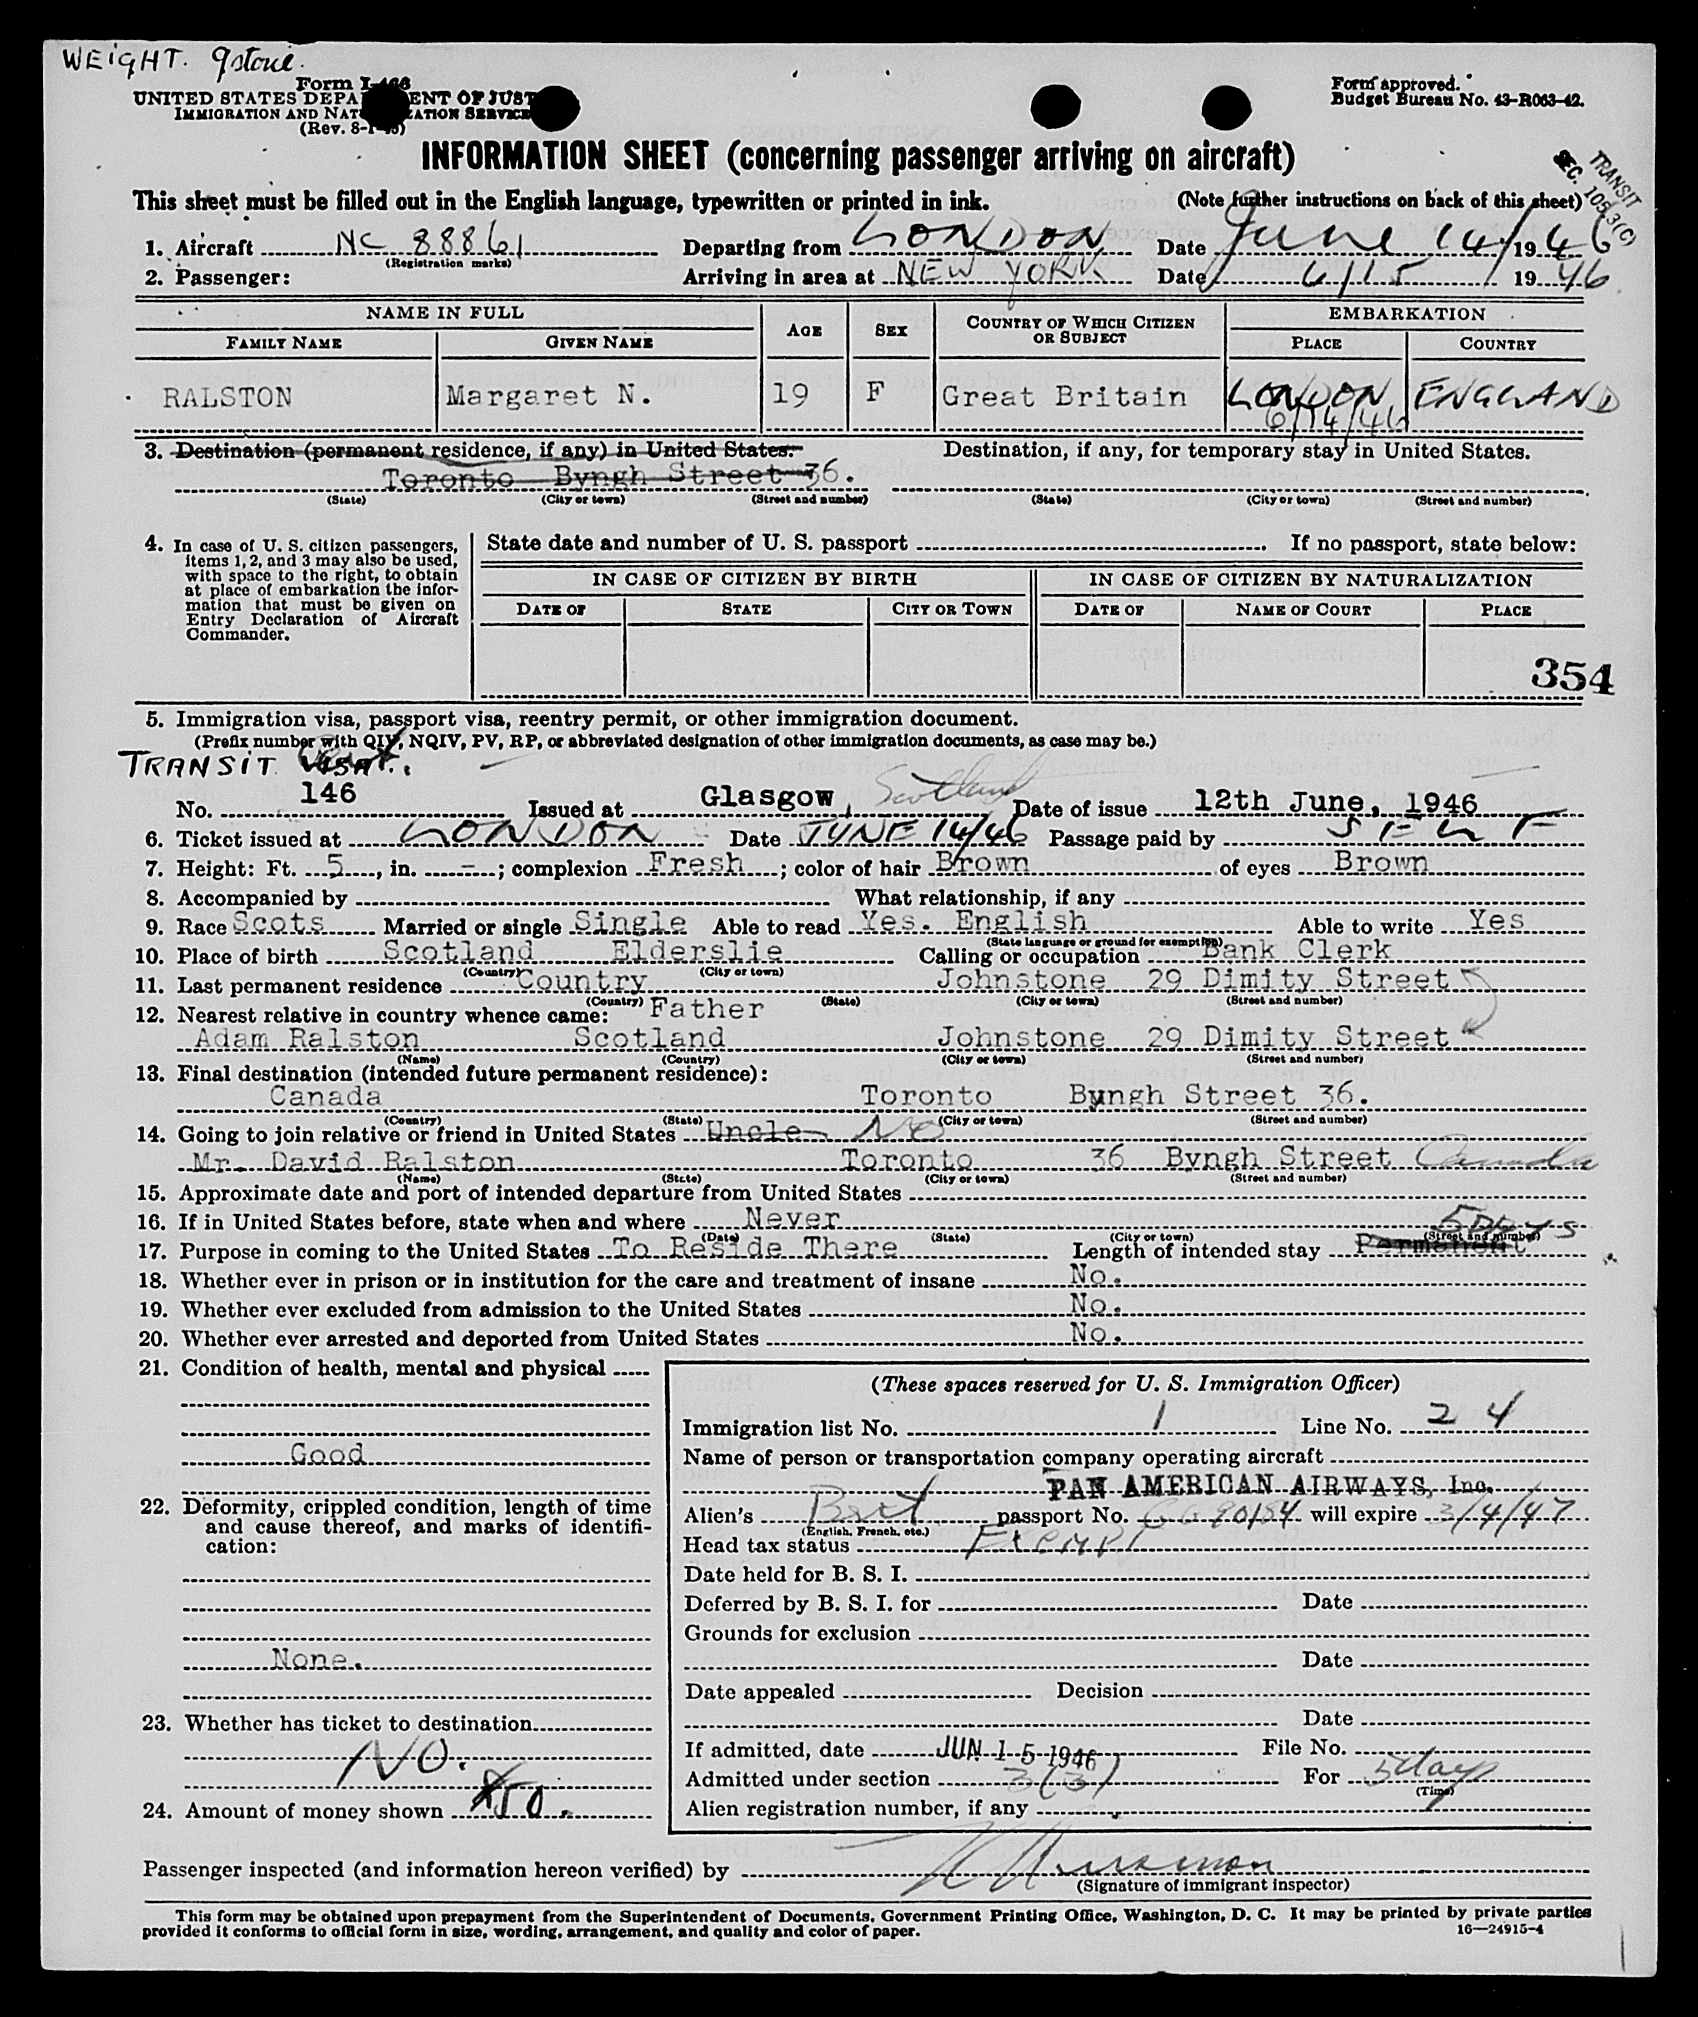 WEIGHT. 9 stone.
Form I-466
UNITED STATES DEPARTMENT OF JUSTICE
IMMIGRATION AND NATURALIZATION SERVICE
(Rev. 8-1-45)
Form approved.
Budget Bureau No. 43-R063-42.
INFORMATION SHEET (concerning passenger arriving on aircraft)
TRANSIT
SEC. 105.3(C)
This sheet must be filled out in the English language, typewritten or printed in ink. (Note further instructions on back of this sheet)
1. Aircraft NC 88861 Departing from LONDON Date June 14/ 19 46
(Registration marks)
2. Passenger: Arriving in area at NEW YORK Date 6/15 19 46
NAME IN FULL AGE SEX COUNTRY OF WHICH CITIZEN OR SUBJECT EMBARKATION
FAMILY NAME GIVEN NAME PLACE COUNTRY
RALSTON Margaret N. 19 F Great Britain LONDON ENGLAND
6/14/46
3. Destination (permanent residence, if any) in United States: Destination, if any, for temporary stay in United States.
Toronto Byngh Street 36.
(State) (City or town) (Street and number) (State) (City or town) (Street and number)
4. In case of U. S. citizen passengers, items 1, 2, and 3 may also be used, with space to the right, to obtain at place of embarkation the information that must be given on Entry Declaration of Aircraft Commander.
State date and number of U. S. passport . If no passport, state below:
IN CASE OF CITIZEN BY BIRTH IN CASE OF CITIZEN BY NATURALIZATION
DATE OF STATE CITY OR TOWN DATE OF NAME OF COURT PLACE
354
5. Immigration visa, passport visa, reentry permit, or other immigration document.
(Prefix number with QIV, NQIV, PV, RP, or abbreviated designation of other immigration documents, as case may be.)
TRANSIT VISA Cert.
No. 146 Issued at Glasgow, Scotland Date of issue 12th June, 1946
6. Ticket issued at LONDON Date JUNE 14/46 Passage paid by SELF
7. Height: Ft. 5, in. -; complexion Fresh; color of hair Brown of eyes Brown
8. Accompanied by What relationship, if any
9. Race Scots Married or single Single Able to read Yes. English Able to write Yes
(State language or ground for exemption)
10. Place of birth Scotland Elderslie Calling or occupation Bank Clerk
(Country) (City or town)
11. Last permanent residence Country Johnstone 29 Dimity Street
(Country) (State) (City or town) (Street and number)
12. Nearest relative in country whence came: Father
Adam Ralston Scotland Johnstone 29 Dimity Street
(Name) (Country) (City or town) (Street and number)
13. Final destination (intended future permanent residence):
Canada Toronto Byngh Street 36.
(Country) (State) (City or town) (Street and number)
14. Going to join relative or friend in United States Uncle No
Mr. David Ralston Toronto 36 Byngh Street Canada
(Name) (State) (City or town) (Street and number)
15. Approximate date and port of intended departure from United States
16. If in United States before, state when and where Never
(Date) (State) (City or town) (Street and number)
5 DAYS
17. Purpose in coming to the United States To Reside There Length of intended stay Permanent
18. Whether ever in prison or in institution for the care and treatment of insane No.
19. Whether ever excluded from admission to the United States No.
20. Whether ever arrested and deported from United States No.
21. Condition of health, mental and physical
Good
22. Deformity, crippled condition, length of time and cause thereof, and marks of identification:
None.
23. Whether has ticket to destination
NO.
24. Amount of money shown $50.
(These spaces reserved for U. S. Immigration Officer)
Immigration list No. 1 Line No. 24
Name of person or transportation company operating aircraft
PAN AMERICAN AIRWAYS, Inc.
Alien's Brit passport No. CG90184 will expire 3/4/47
(English, French, etc.)
Head tax status Exempt
Date held for B. S. I.
Deferred by B. S. I. for Date
Grounds for exclusion
Date
Date appealed Decision
Date
If admitted, date JUN 15 1946 File No.
Admitted under section 3(3) For 5 days
(Time)
Alien registration number, if any
Passenger inspected (and information hereon verified) by
(Signature of immigrant inspector)
This form may be obtained upon prepayment from the Superintendent of Documents, Government Printing Office, Washington, D. C. It may be printed by private parties
provided it conforms to official form in size, wording, arrangement, and quality and color of paper.
16—24915-4